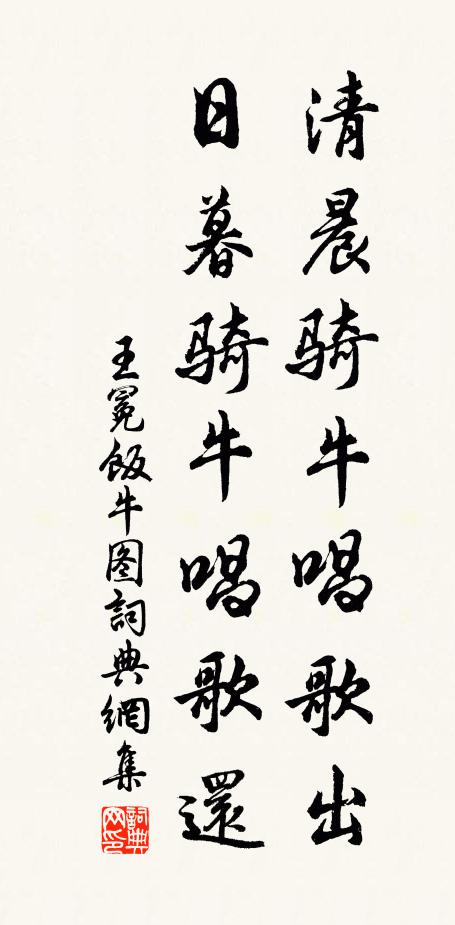 清晨骑牛唱歌出
日暮骑牛唱歌還
王冕飯牛图詞典網集
詞典网印